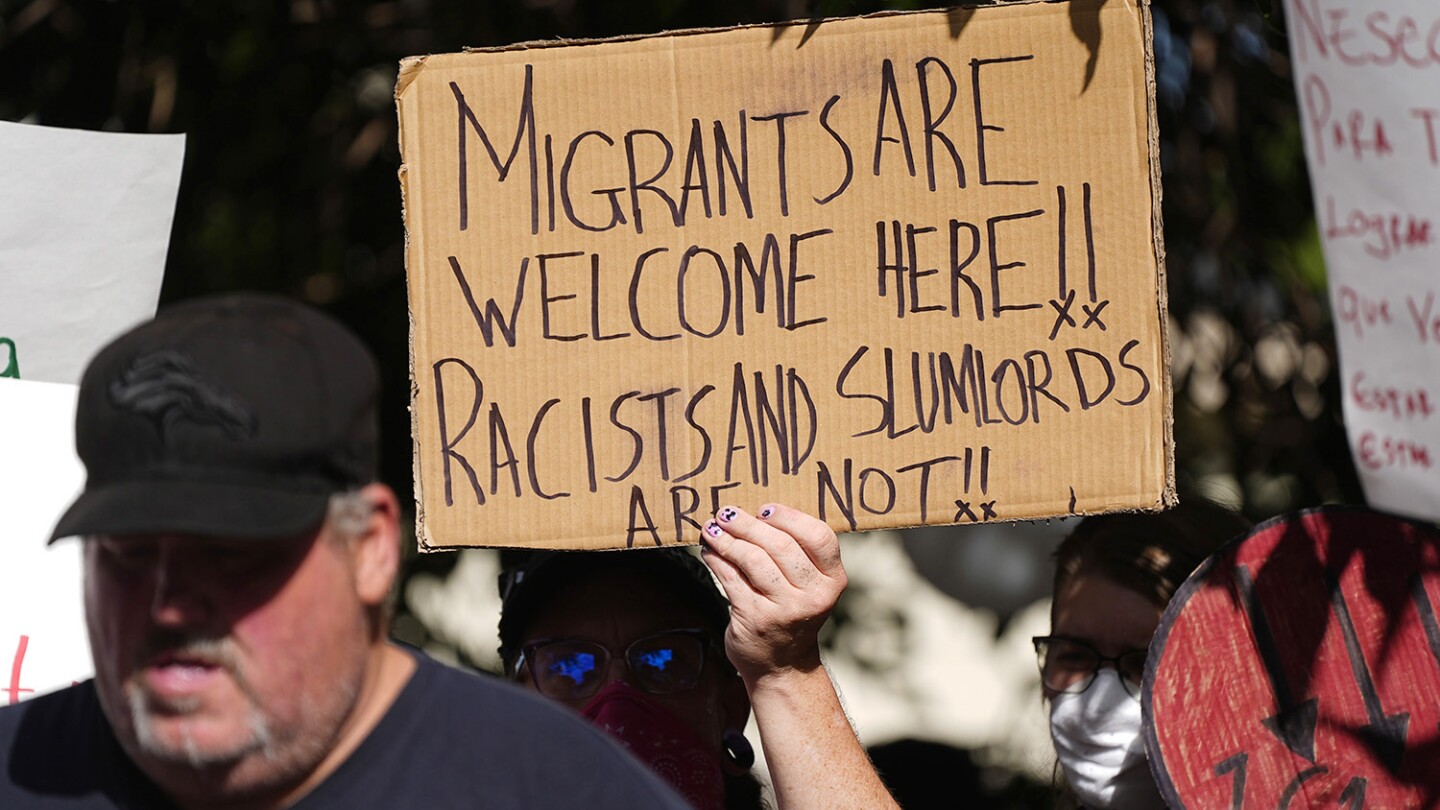 MIGRANTS ARE
WELCOME HERE!!
RACISTS AND SLUMLORDS
ARE NOT!!
PARA T
LOGRAR
que V
ESTA